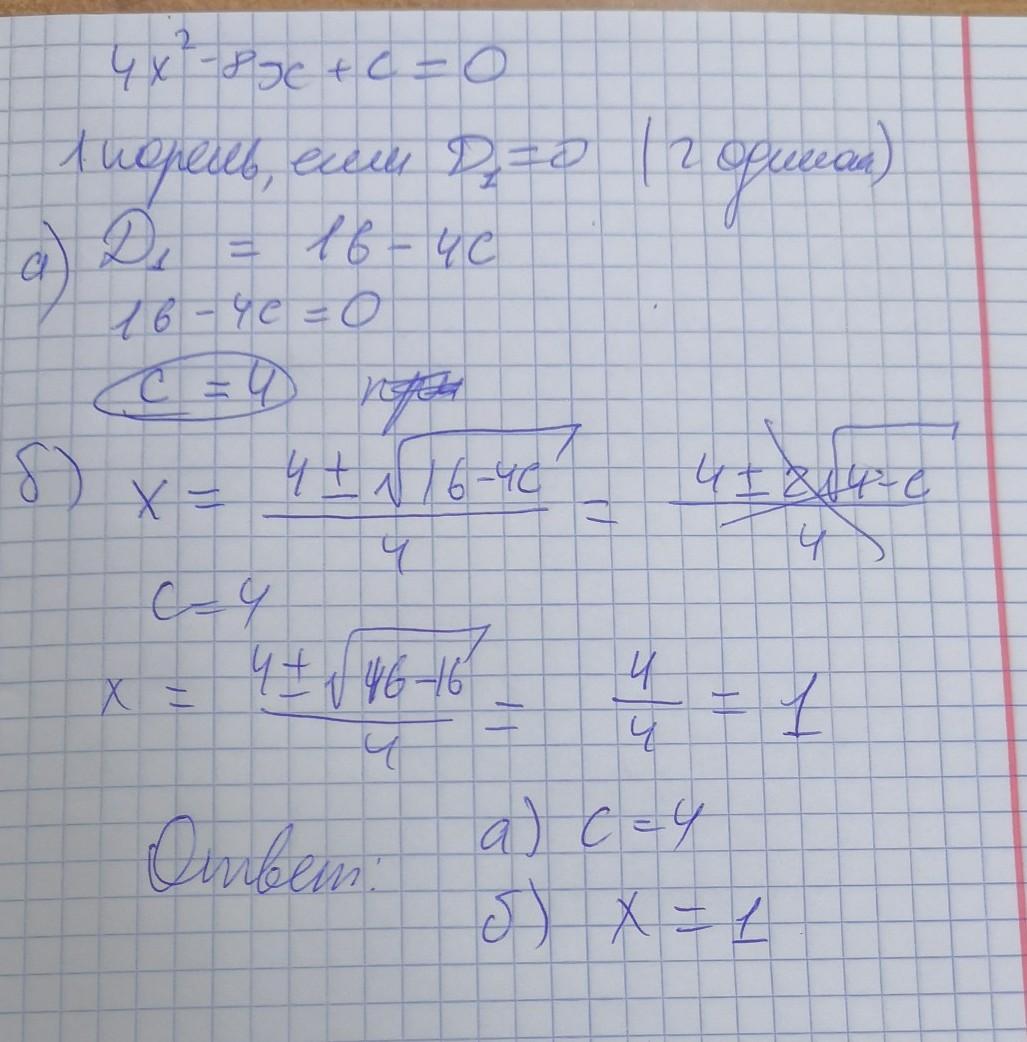 4x² - 8x + c = 0
1 корень, если D₁ = 0 (2 одинак)
а) D₁ = 16 - 4c
16 - 4c = 0
c = 4
б) x = (4 ± √(16 - 4c))/4 = (4 ± 2√(4 - c))/4
c = 4
x = (4 ± √(16 - 16))/4 = 4/4 = 1
Ответ: а) c = 4
б) x = 1